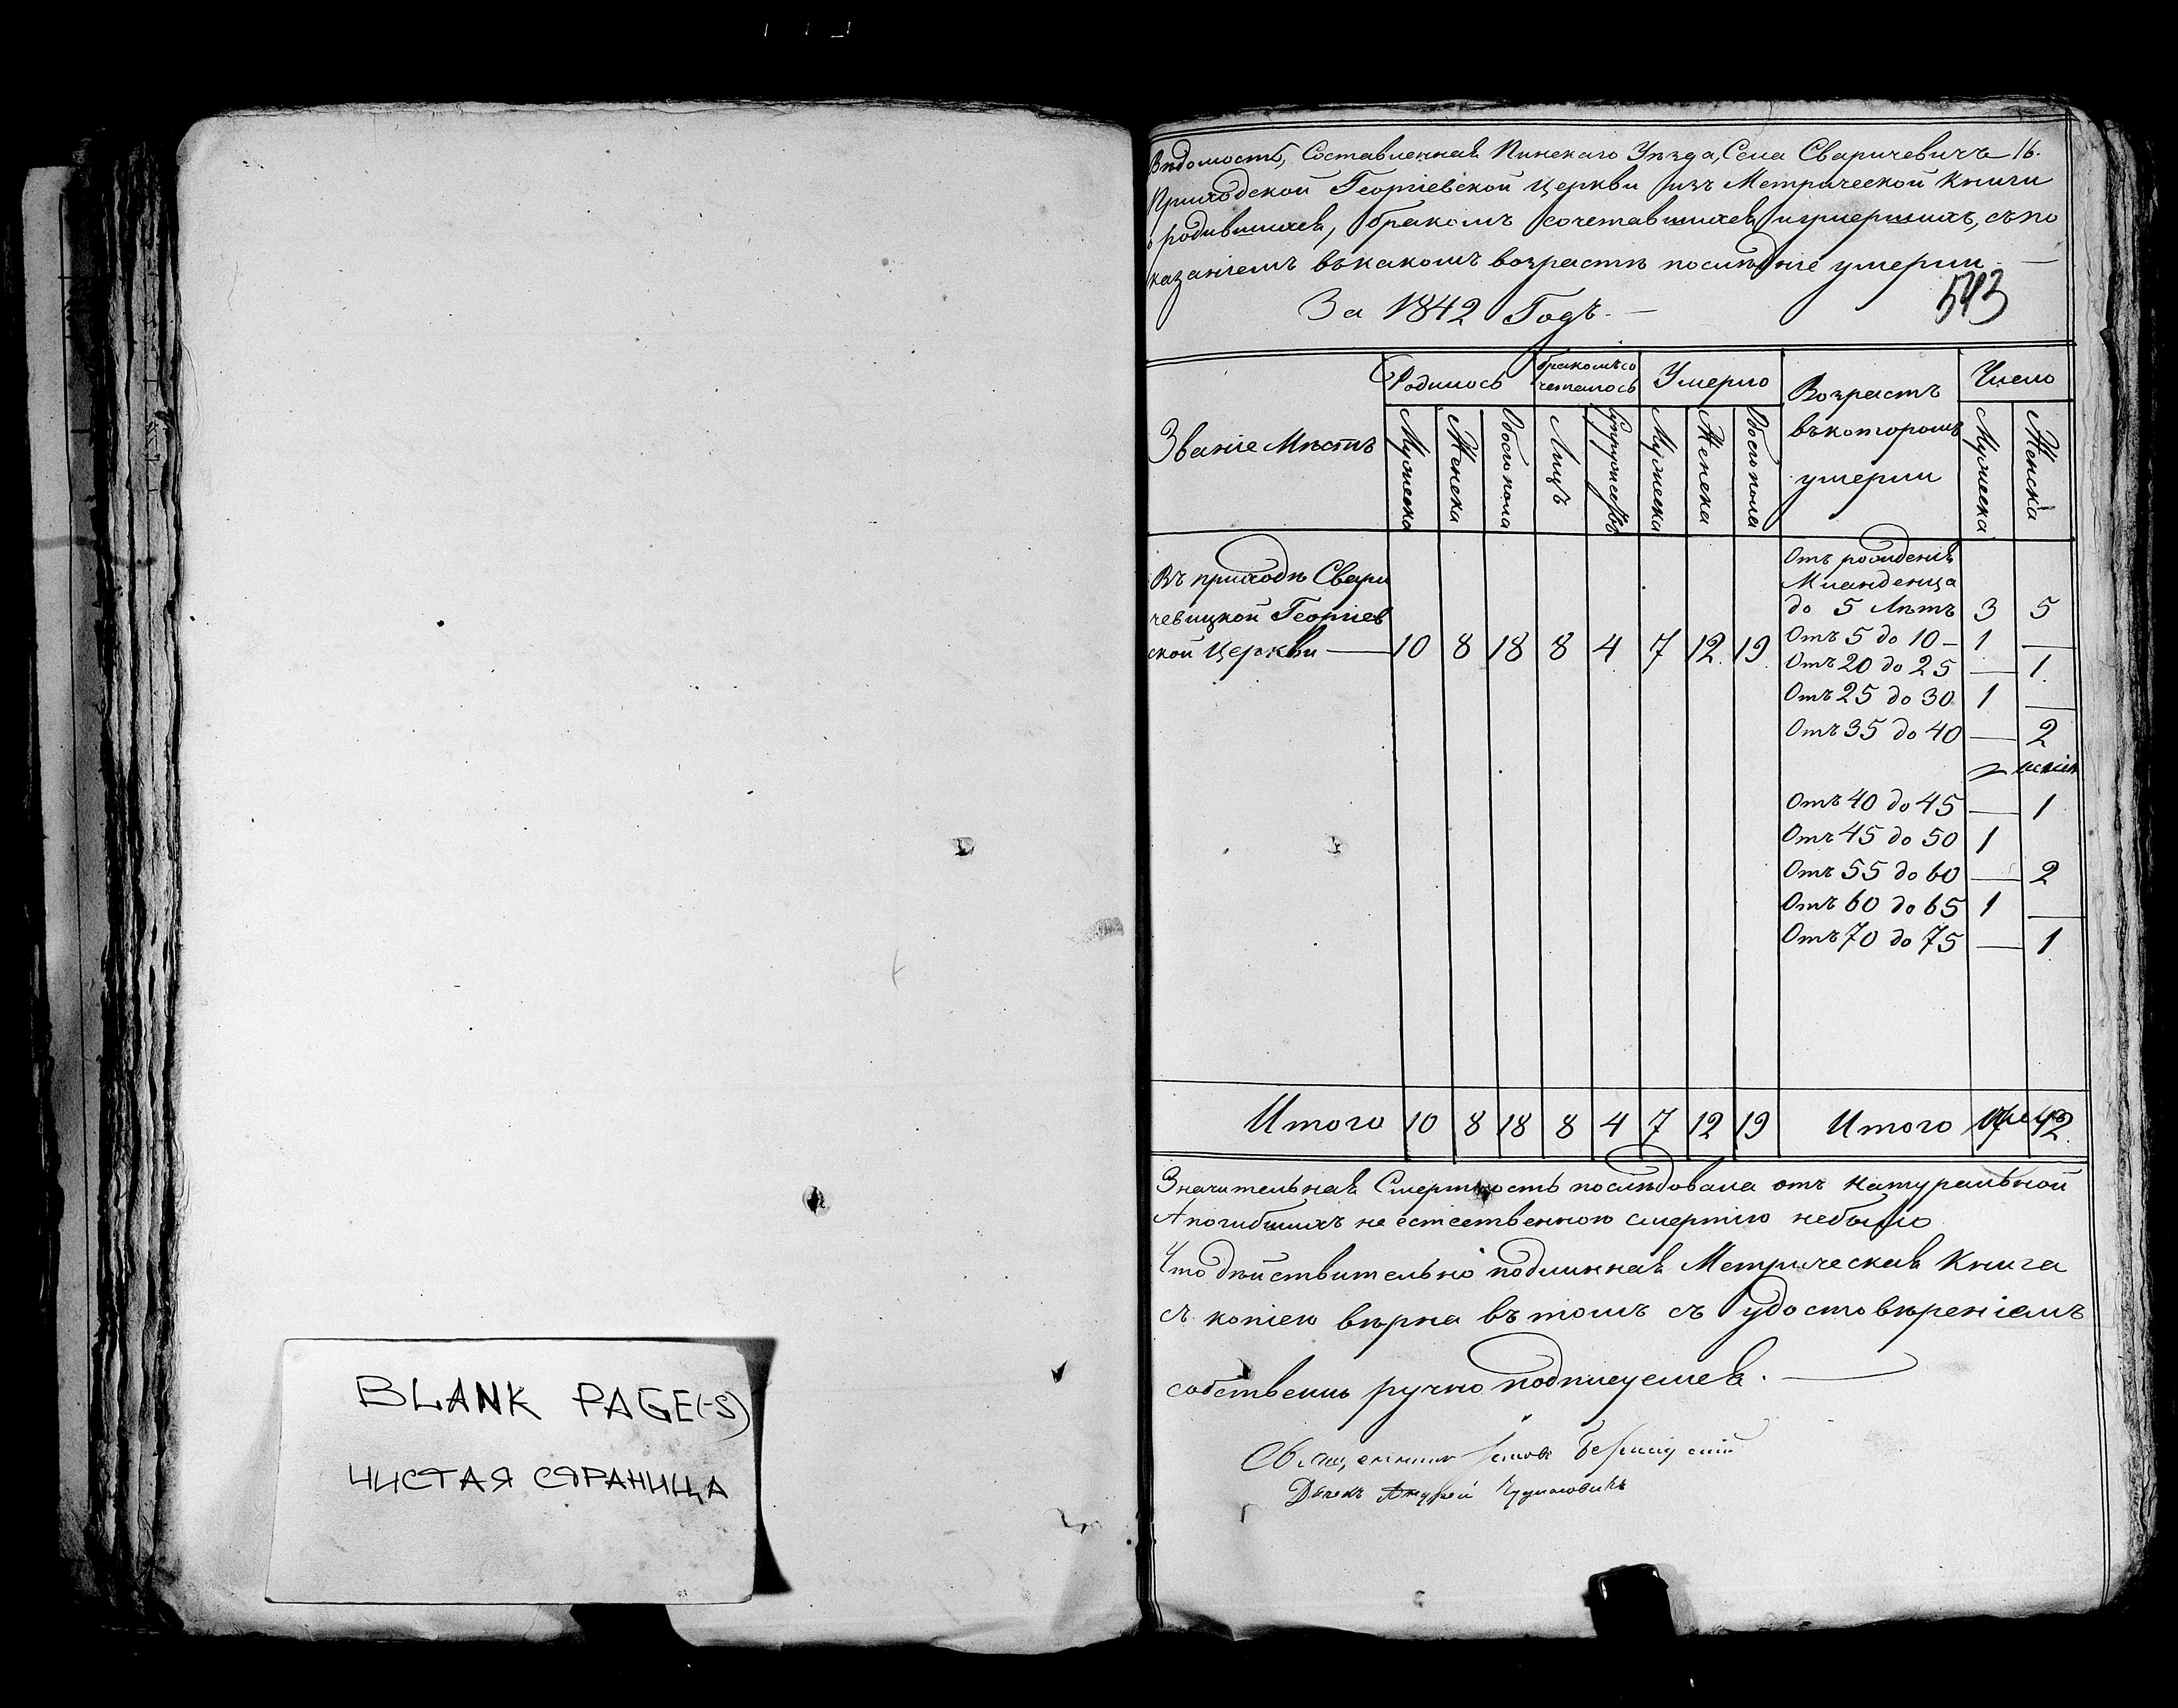 BLANK PAGE(-S)
ЧИСТАЯ СТРАНИЦА
Вѣдомость, Составленная Пинскаго Уѣзда, Села Сваричевичъ 16.
Приходской Георгіевской Церкви изъ Метрической Книги
о родившихся, бракомъ сочетавшихся и умершихъ, съ по
казаніемъ въ какомъ возрастѣ послѣдніе умерли. —
За 1842 Годъ. —
543
Званіе Мѣстъ
Родилось
Бракомъ со
четалось
Умерло
Возрастъ
въ которомъ
умерли
Число
Мужеска
Женска
Обоего пола
Лицъ
Супружествъ
Мужеска
Женска
Обоего пола
Мужеска
Женска
Въ приходѣ Свари
чевицкой Георгіев
ской Церкви — 10 8 18 8 4 7 12 19
Отъ рожденія
Младенца
до 5 Лѣтъ 3 5
Отъ 5 до 10 – 1 —
Отъ 20 до 25 — 1
Отъ 25 до 30 1 —
Отъ 35 до 40 — 2
Отъ 40 до 45 — 1
Отъ 45 до 50 1
Отъ 55 до 60 — 2
Отъ 60 до 65 1 —
Отъ 70 до 75 — 1
Итого 10 8 18 8 4 7 12 19 Итого
Значительная Смертность послѣдовала отъ натуральной
А погибшихъ не естественною смертію небыло
Что дѣйствительно подлинная Метрическая Книга
съ копіею вѣрна въ томъ съ удостовѣреніемъ
собственно ручно подписуемся. —
Священникъ
Дячекъ Андрей